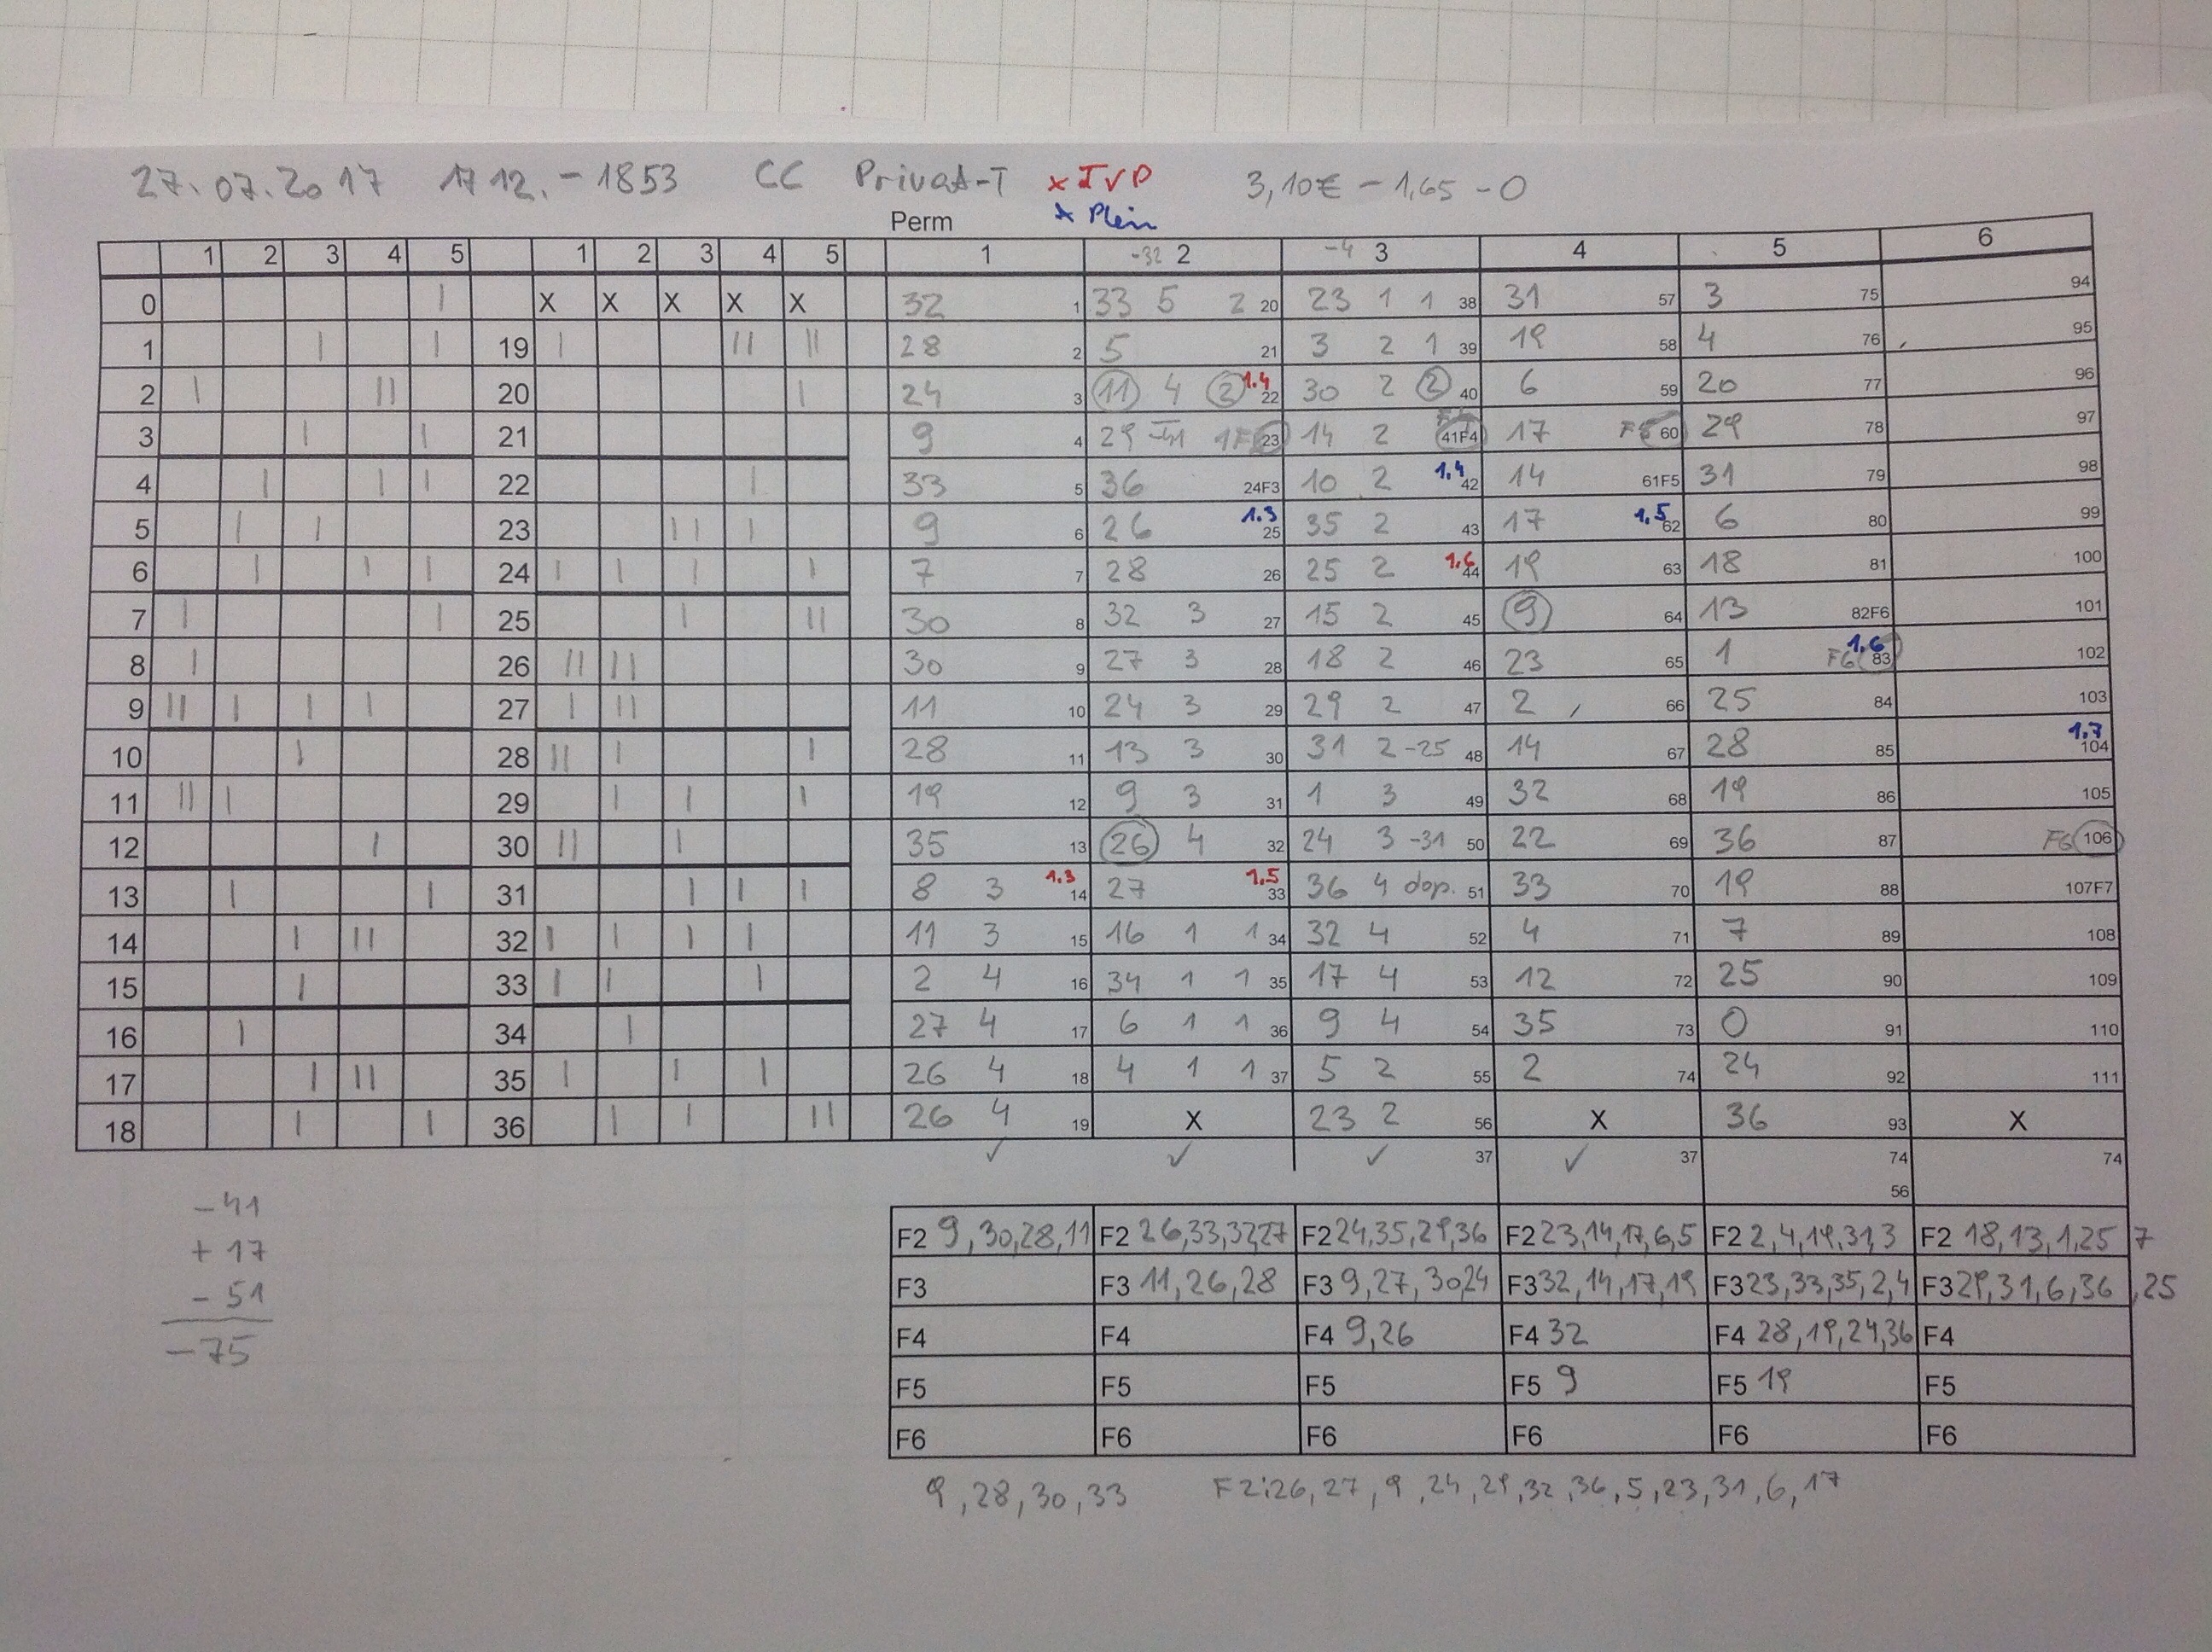 27.07.2017 1712.-1853 CC Privat-T x TVP 3,10€ - 1,65 - 0
Perm x Plein
1 2 3 4 5 1 2 3 4 5 1 -32 2 -4 3 4 5 6
0 | X X X X X 32 1 33 5 2 20 23 1 1 38 31 57 3 75 94
1 | | 19 | || || 28 2 5 21 3 2 1 39 19 58 4 76 95
2 | || 20 | 24 3 11 4 2 1.4 22 30 2 2 40 6 59 20 77 96
3 | | 21 9 4 29 23 14 2 41F4 17 60 29 78 97
4 | | | 22 | 33 5 36 24F3 10 2 1.4 42 14 61F5 31 79 98
5 | | 23 || | 9 6 26 1.3 25 35 2 43 17 1.5 62 6 80 99
6 | | | 24 | | | | 7 7 28 26 25 2 1.6 44 19 63 18 81 100
7 | | 25 | || 30 8 32 3 27 15 2 45 9 64 13 82F6 101
8 | 26 || || 30 9 27 3 28 18 2 46 23 65 1 F6 1.6 83 102
9 || | | | 27 | || 11 10 24 3 29 29 2 47 2 66 25 84 103
10 | 28 || | | 28 11 13 3 30 31 2 -25 48 14 67 28 85 1.7 104
11 || | 29 | | | 19 12 9 3 31 1 3 49 32 68 19 86 105
12 | 30 || | 35 13 26 4 32 24 3 -31 50 22 69 36 87 F6 106
13 | | 31 | | | 8 3 1.3 14 27 1.5 33 36 4 dop. 51 33 70 19 88 107F7
14 | || 32 | | | | 11 3 15 16 1 1 34 32 4 52 4 71 7 89 108
15 | 33 | | | 2 4 16 34 1 1 35 17 4 53 12 72 25 90 109
16 | 34 | 27 4 17 6 1 1 36 9 4 54 35 73 0 91 110
17 | || 35 | | | 26 4 18 4 1 1 37 5 2 55 2 74 24 92 111
18 | | 36 | | || 26 4 19 X 23 2 56 X 36 93 X
✓ ✓ ✓ 37 ✓ 37 74 74
56
-41
+17
-51
-75
F2 9,30,28,11 F2 26,33,32,27 F2 24,35,29,36 F2 23,14,17,6,5 F2 2,4,19,31,3 F2 18,13,1,25 7
F3 F3 11,26,28 F3 9,27,30,24 F3 32,14,17,19 F3 23,33,35,2,4 F3 29,31,6,36,25
F4 F4 F4 9,26 F4 32 F4 28,19,24,36 F4
F5 F5 F5 F5 9 F5 19 F5
F6 F6 F6 F6 F6 F6
9,28,30,33 F2:26,27,9,24,29,32,36,5,23,31,6,17